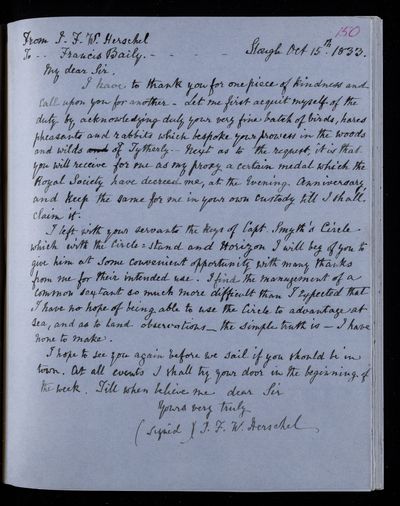 150
From J. F. W. Herschel
To - - Francis Baily. - - - - Slough Oct 15th. 1833.
My dear Sir.
I have to thank you for one piece of kindness and
call upon you for another - Let me first acquit myself of the
duty by acknowledging duly your very fine batch of birds, hares
pheasants and rabbits which bespoke your prowess in the woods
and wilds and of Tytherly - Next as to the request, it is that
you will receive for me as my proxy a certain medal which the
Royal Society have decreed me, at the Evening Anniversary,
and keep the same for me in your own custody till I shall
claim it.
I left with your servants the keys of Capt. Smyth's Circle
which with the Circle: stand and Horizon I will beg of you to
give him at some convenient opportunity with many thanks
from me for their intended use. I find the management of a
common sextant so much more difficult than I expected that
I have no hope of being able to use the Circle to advantage at
sea, and as to land observations - the simple truth is - I have
none to make.
I hope to see you again before we sail if you should be in
town. At all events I shall try your door in the beginning of
the week. Till when believe me dear Sir
Yours very truly
(signed) J. F. W. Herschel